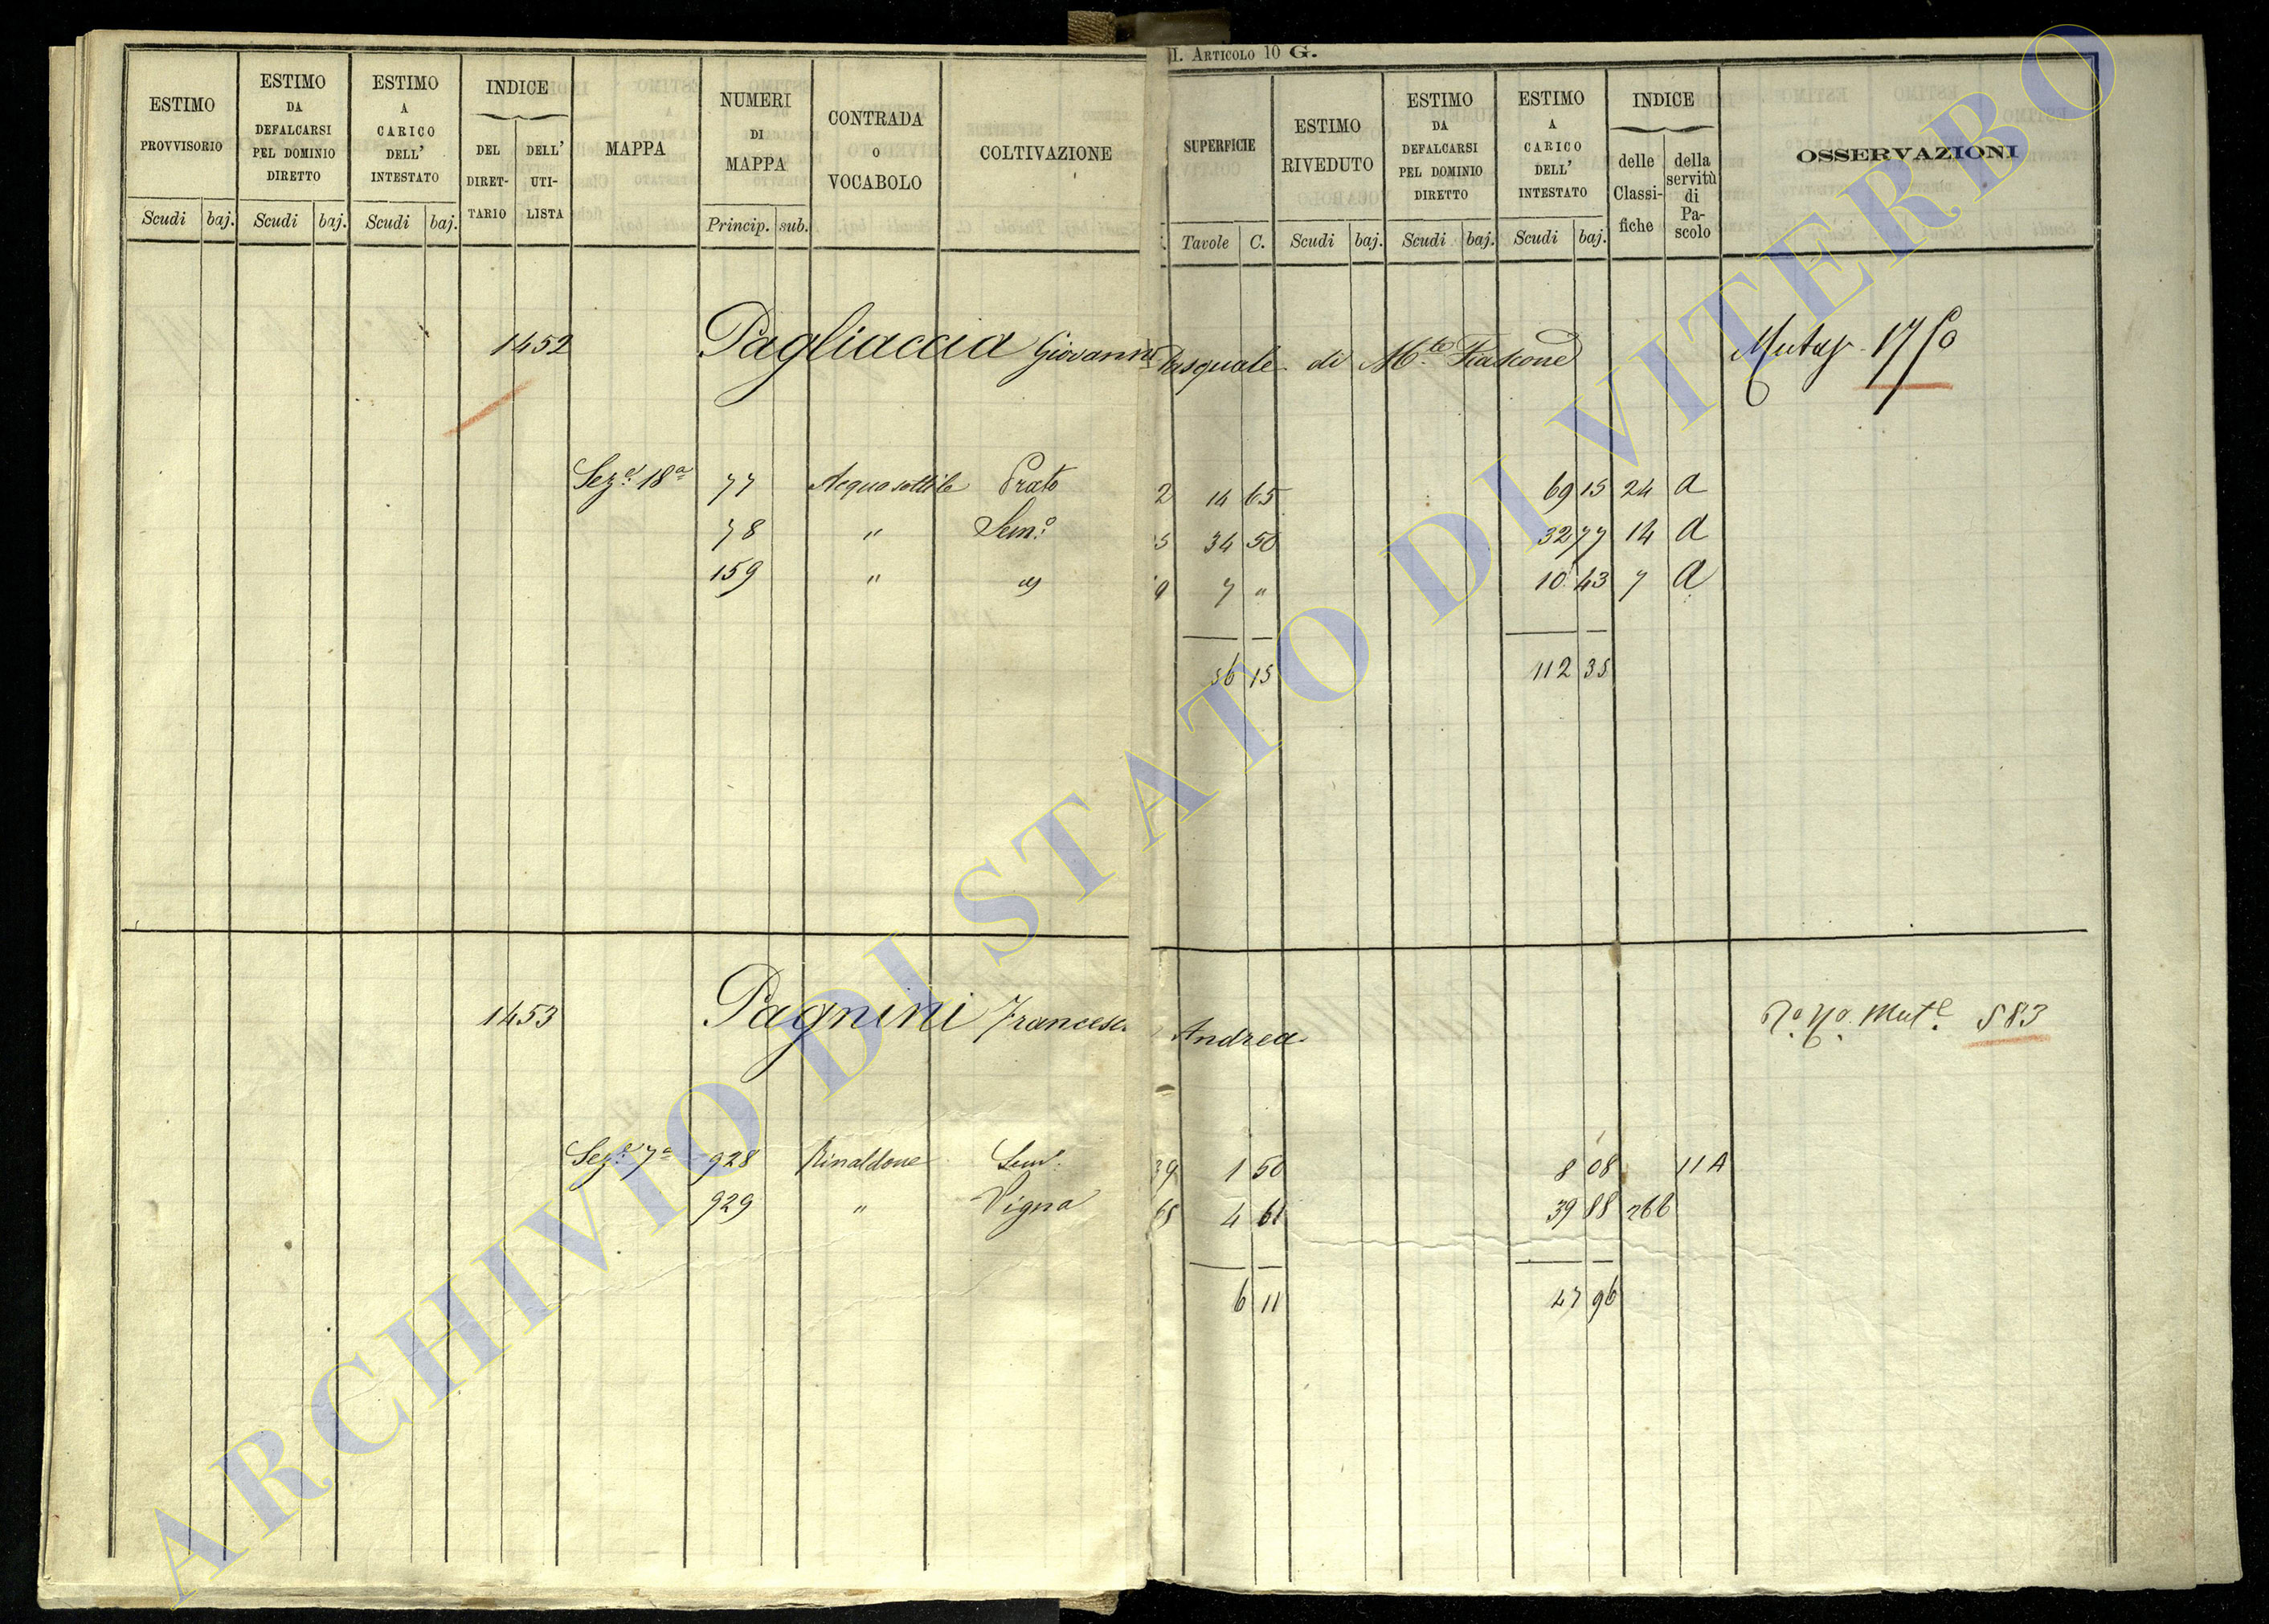 I. ARTICOLO 10 G.
ESTIMO PROVVISORIO
Scudi baj.
ESTIMO DA DEFALCARSI PEL DOMINIO DIRETTO
Scudi baj.
ESTIMO A CARICO DELL' INTESTATO
Scudi baj.
INDICE
DEL DIRET- TARIO
DELL' UTI- LISTA
MAPPA
NUMERI DI MAPPA
Princip. sub.
CONTRADA O VOCABOLO
COLTIVAZIONE
SUPERFICIE
Tavole C.
ESTIMO RIVEDUTO
Scudi baj.
ESTIMO DA DEFALCARSI PEL DOMINIO DIRETTO
Scudi baj.
ESTIMO A CARICO DELL' INTESTATO
Scudi baj.
INDICE
delle Classi- fiche
della servitù di Pa- scolo
OSSERVAZIONI
1452 Pagliaccia Giovanni Pasquale di M.te Fiascone
Sez.e 18a 77 Acquasottile Prato 2 14 65 69 15 24 A
78 " Sem.o 5 34 50 32 77 14 A
159 " 9 7 " 10 43 7 A
56 15 112 35
1453 Pagnini Francesco Andrea Mut.e 583
Sez.e 7a 928 Rinaldone Sem.o 39 1 50 8 08 11 A
929 " Vigna 68 4 61 39 88 266
6 11 47 96
ARCHIVIO DI STATO DI VITERBO